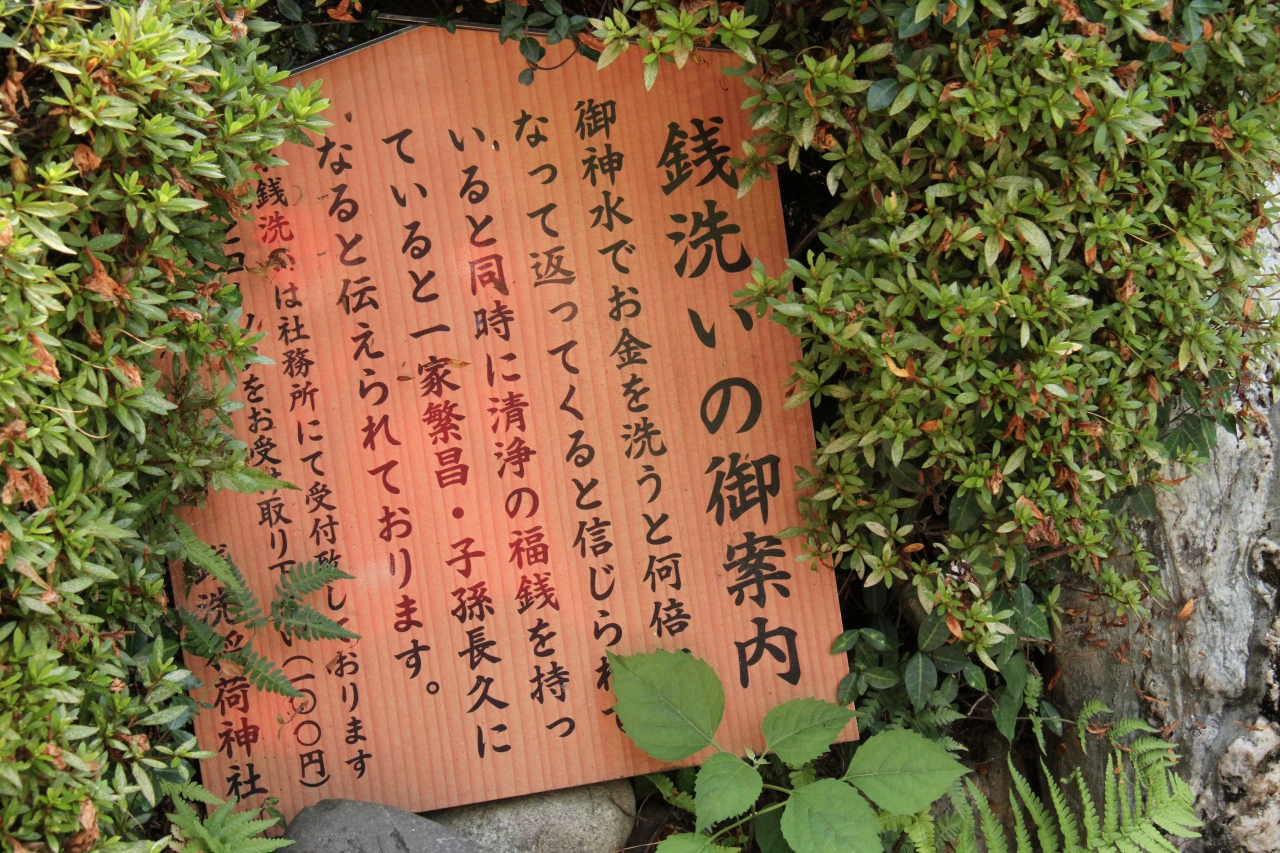 銭洗いの御案内
御神水でお金を洗うと何倍
なって返ってくると信じられ
いると同時に清浄の福銭を持っ
ていると一家繁昌・子孫長久に
なると伝えられております。
銭洗 は社務所にて受付致しております
をお受け取り下 (一〇〇円)
洗 荷神社